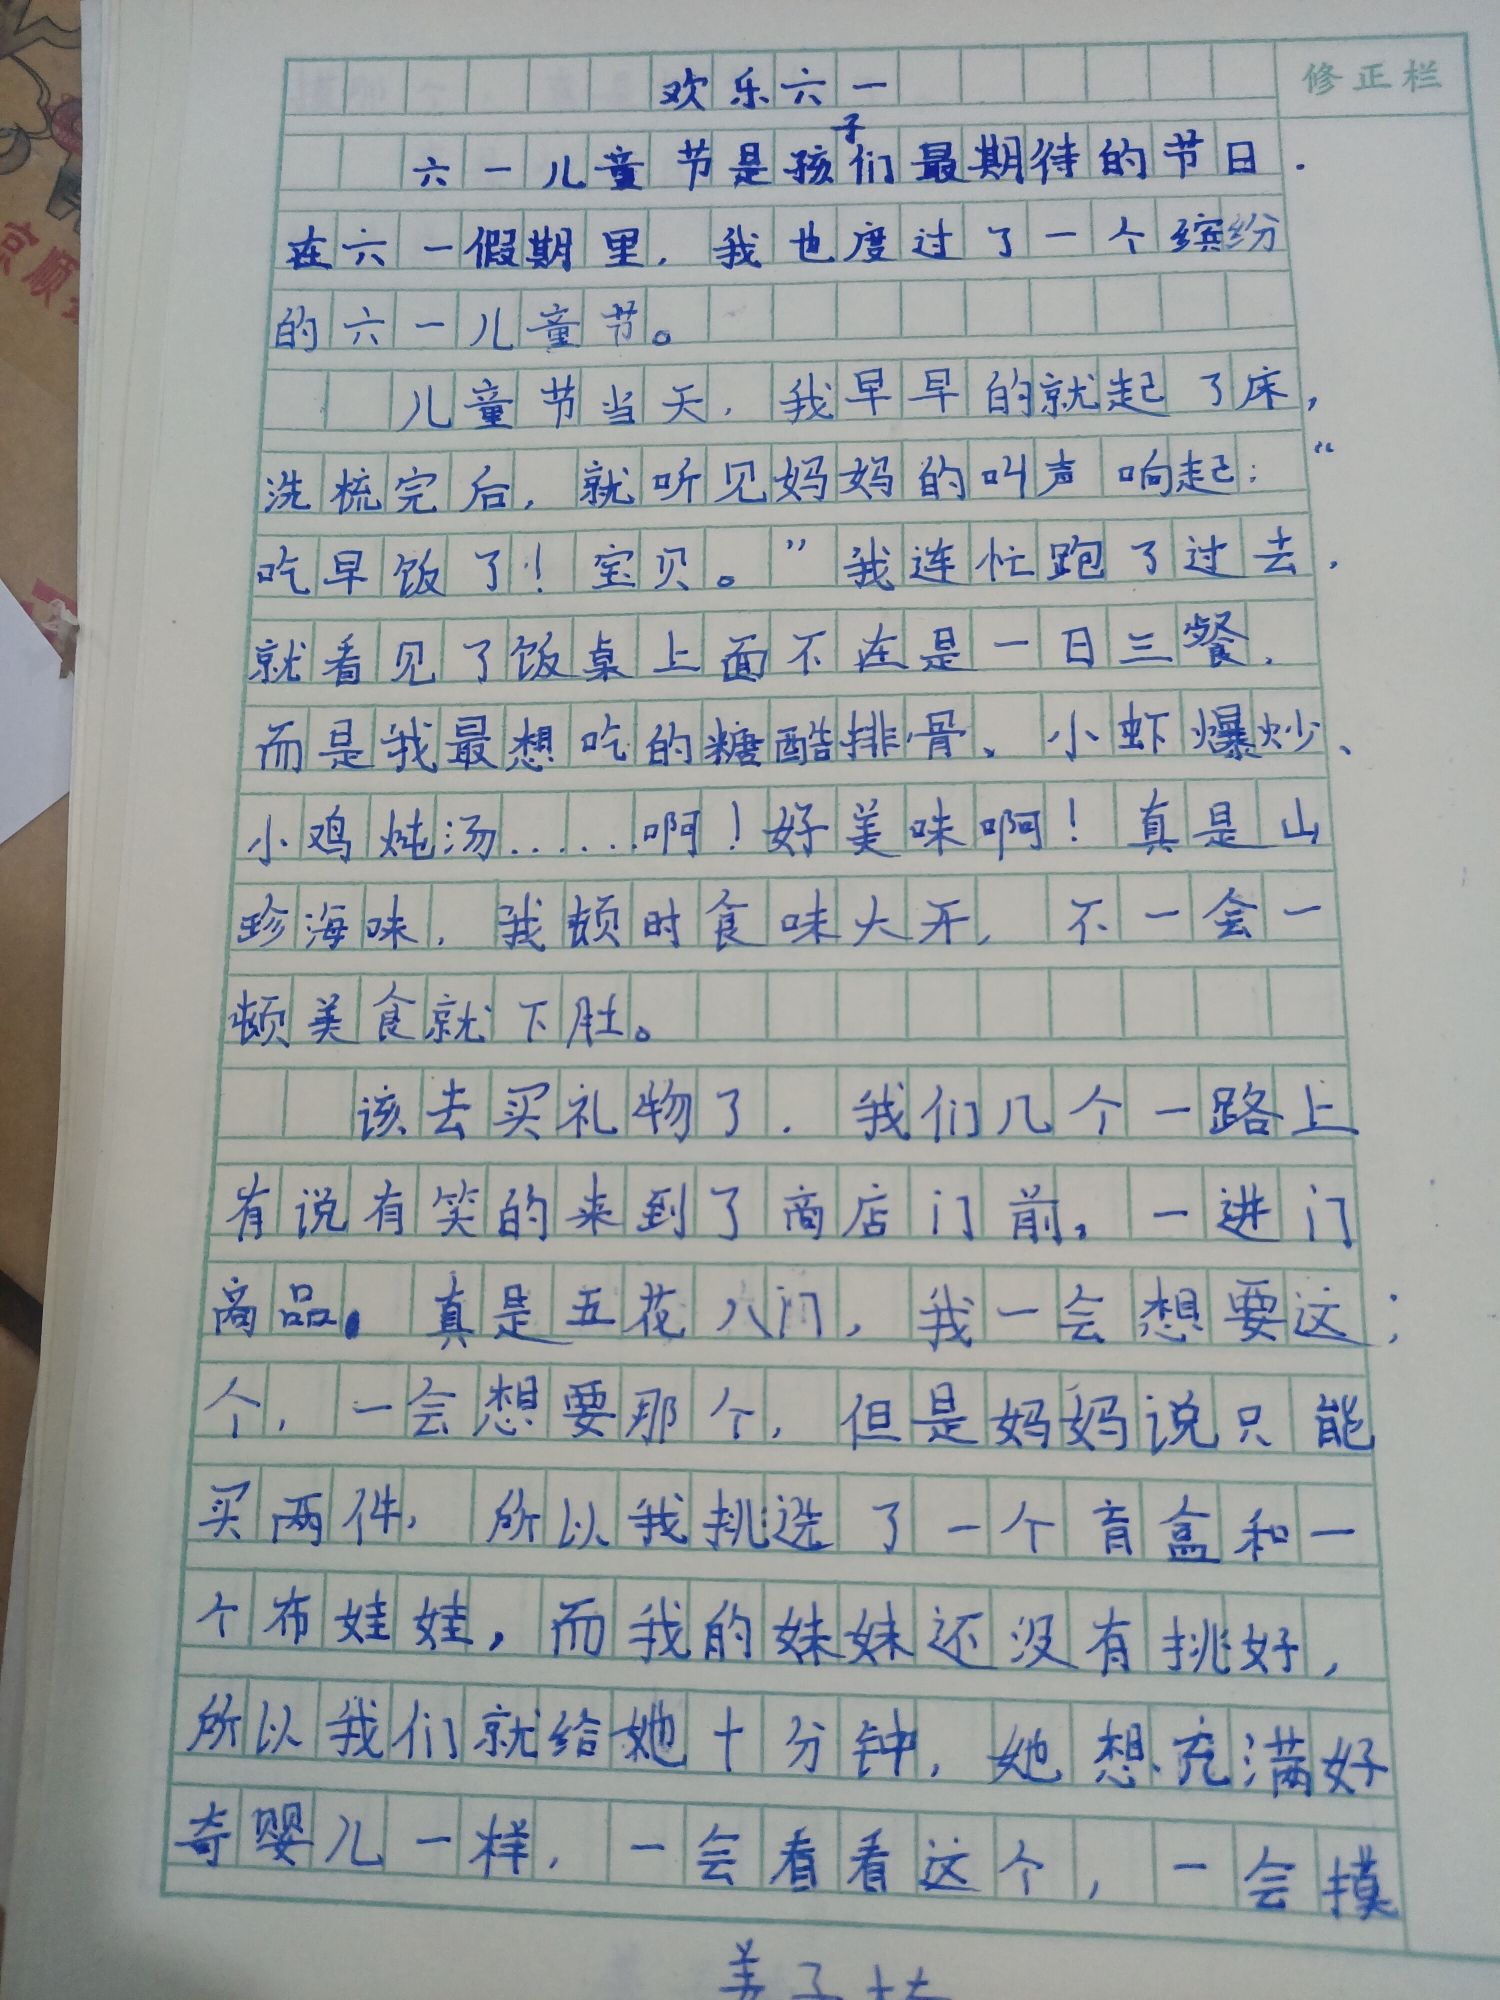 欢乐六一
修正栏
六一儿童节是孩子们最期待的节日.
在六一假期里,我也度过了一个缤纷
的六一儿童节。
儿童节当天,我早早的就起了床,
洗梳完后,就听见妈妈的叫声响起:“
吃早饭了!宝贝。”我连忙跑了过去.
就看见了饭桌上面不在是一日三餐,
而是我最想吃的糖酷排骨、小虾爆炒、
小鸡炖汤......啊!好美味啊!真是山
珍海味,我顿时食味大开,不一会一
顿美食就下肚。
该去买礼物了.我们几个一路上
有说有笑的来到了商店门前。一进门
商品.真是五花八门,我一会想要这;
个,一会想要那个,但是妈妈说只能
买两件,所以我挑选了一个盲盒和一
个布娃娃,而我的妹妹还没有挑好,
所以我们就给她十分钟,她想充满好
奇婴儿一样,一会看看这个,一会摸
京顺